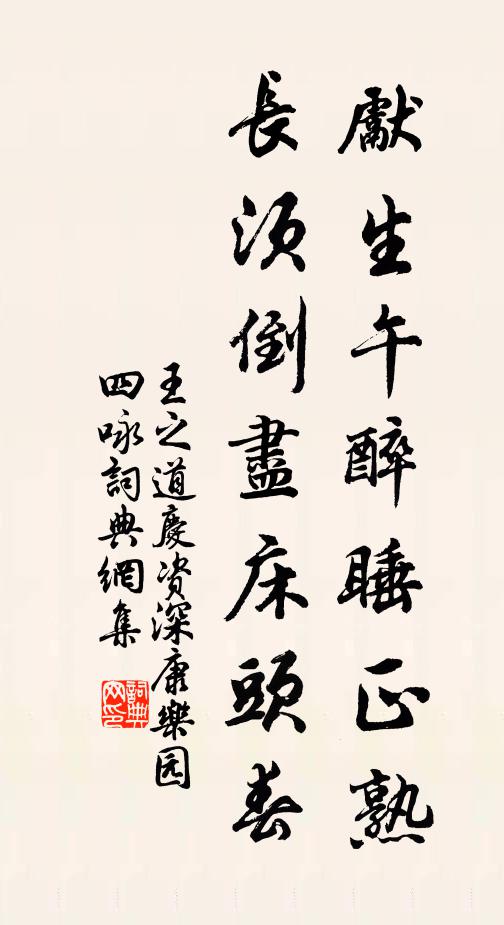 獻生午醉睡正熟
長須倒盡床頭春
王之道慶資深康樂园
四咏詞典網集
詞典网印